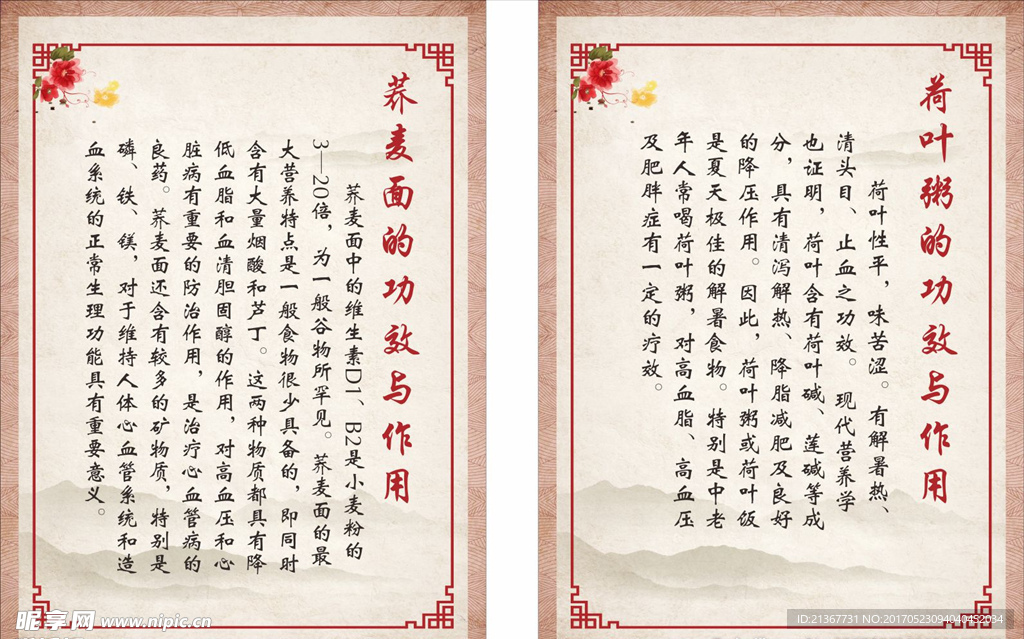 荞麦面的功效与作用
荞麦面中的维生素D1、B2是小麦粉的
3—20倍，为一般谷物所罕见。荞麦面的最
大营养特点是一般食物很少具备的，即同时
含有大量烟酸和芦丁。这两种物质都具有降
低血脂和血清胆固醇的作用，对高血压和心
脏病有重要的防治作用，是治疗心血管病的
良药。荞麦面还含有较多的矿物质，特别是
磷、铁、镁，对于维持人体心血管系统和造
血系统的正常生理功能具有重要意义。
荷叶粥的功效与作用
荷叶性平，味苦涩。有解暑热、
清头目、止血之功效。现代营养学
也证明，荷叶含有荷叶碱、莲碱等成
分，具有清泻解热、降脂减肥及良好
的降压作用。因此，荷叶粥或荷叶饭
是夏天极佳的解暑食物。特别是中老
年人常喝荷叶粥，对高血脂、高血压
及肥胖症有一定的疗效。
昵享网 www.nipic.cn
ID:21367731 NO:20170523094040452034